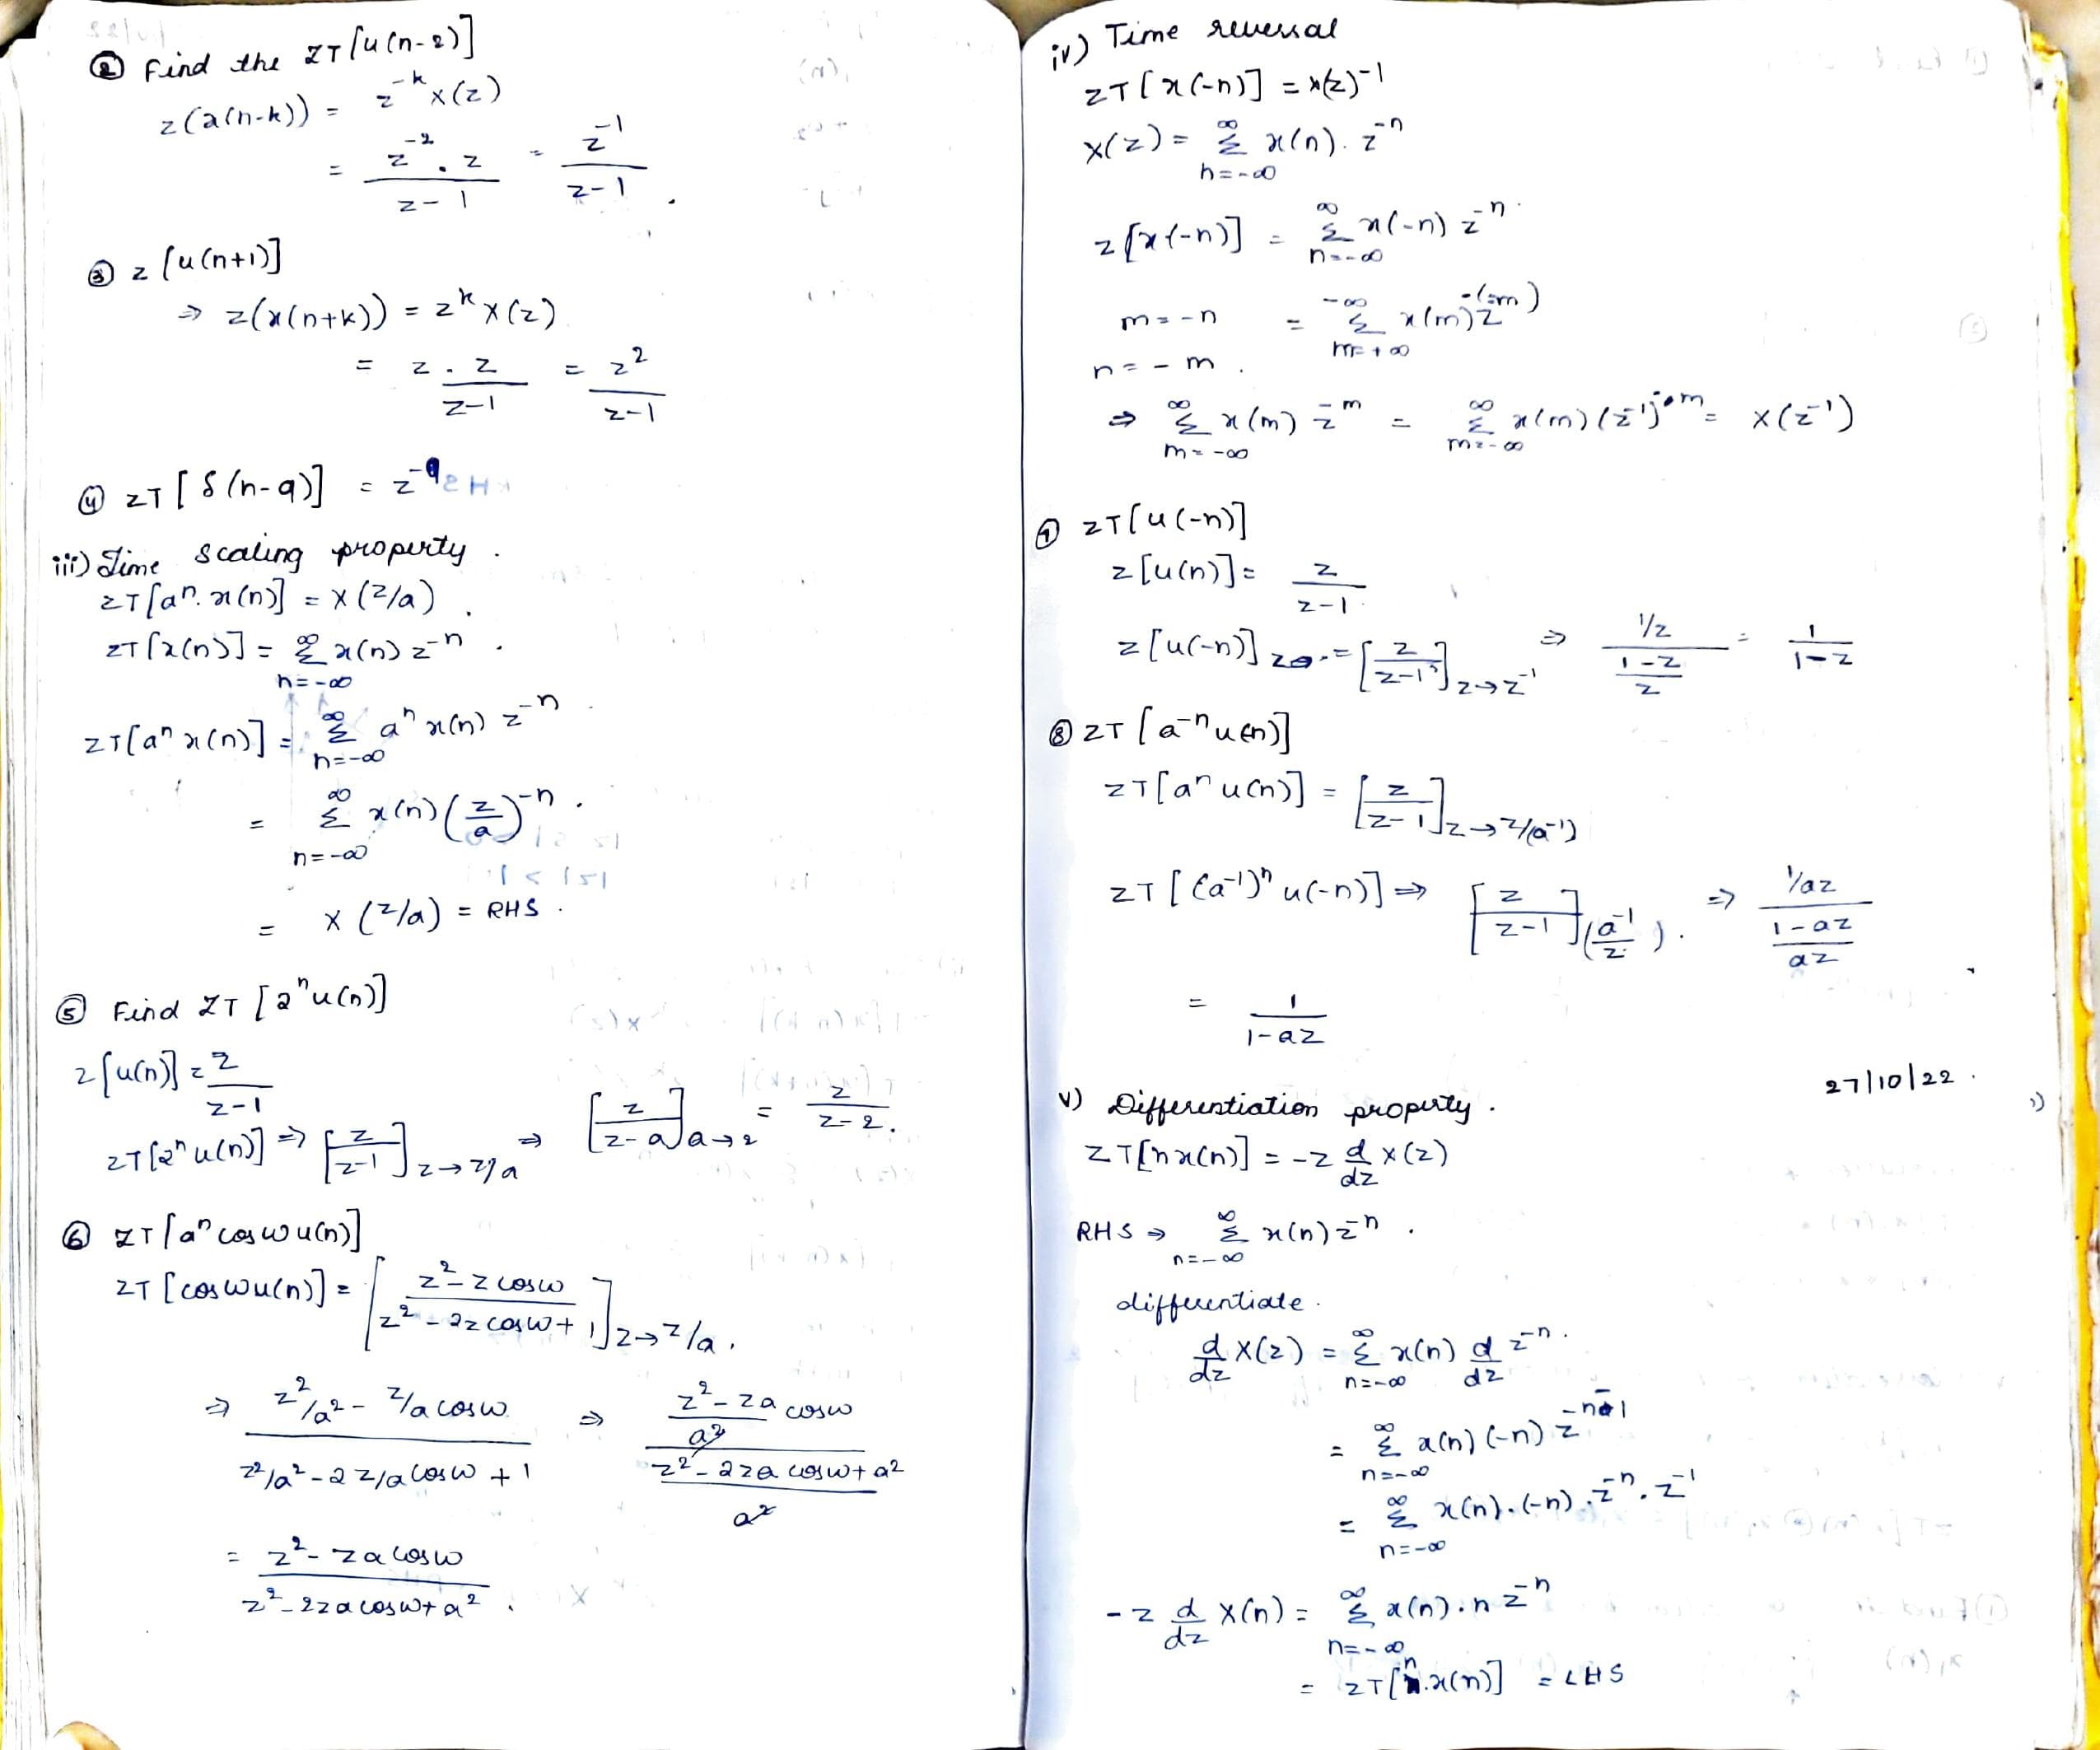 ② Find the ZT[u(n-2)]
z(a(n-k)) = z^-k x(z)
= z^-2 . z / z-1 = z^-1 / z-1 .
③ z[u(n+1)]
⇒ z(x(n+k)) = z^k x(z)
= z . z / z-1 = z^2 / z-1
④ ZT[δ(n-9)] = z^-9
iii) Time scaling property .
ZT[a^n. x(n)] = X(z/a) .
ZT[x(n)] = ∞ Σ n=-∞ x(n) z^-n .
ZT[a^n x(n)] = ∞ Σ n=-∞ a^n x(n) z^-n .
= ∞ Σ n=-∞ x(n) (z/a)^-n .
= X(z/a) = RHS .
⑤ Find ZT [2^n u(n)]
z[u(n)] = z / z-1
ZT[2^n u(n)] ⇒ [z / z-1] z→z/a ⇒ [z / z-a] a→2 = z / z-2 .
⑥ ZT[a^n cosω u(n)]
ZT[cosωu(n)] = [z^2 - z cosω / z^2 - 2z cosω + 1] z→z/a .
⇒ z^2/a^2 - z/a cosω / z^2/a^2 - 2 z/a cosω + 1 ⇒ z^2 - za cosω / a^2 / z^2 - 2za cosω + a^2 / a^2
= z^2 - za cosω / z^2 - 2za cosω + a^2 .
iv) Time reversal
ZT[x(-n)] = x(z)^-1
X(z) = ∞ Σ n=-∞ x(n). z^-n
z[x(-n)] = ∞ Σ n=-∞ x(-n) z^-n .
m = -n = -∞ Σ m=+∞ x(m) z^-(-m)
n = -m .
⇒ ∞ Σ m=-∞ x(m) z^-m = ∞ Σ m=-∞ x(m) (z^-1)^-m = X(z^-1)
⑦ ZT[u(-n)]
z[u(n)] = z / z-1
z[u(-n)] = [z / z-1] z→z^-1 ⇒ 1/z / 1-z / z = 1 / 1-z
⑧ ZT [a^-n u(-n)]
ZT[a^n u(n)] = [z / z-1] z→z/(a^-1)
ZT[(a^-1)^n u(-n)] ⇒ [z / z-1] (a^-1 / z) . ⇒ 1/az / 1-az / az
= 1 / 1-az
27/10/22 .
v) Differentiation property .
ZT[n x(n)] = -z d/dz X(z)
RHS ⇒ ∞ Σ n=-∞ x(n) z^-n .
differentiate .
d/dz X(z) = ∞ Σ n=-∞ x(n) d/dz z^-n .
= ∞ Σ n=-∞ x(n) (-n) z^-n-1
= ∞ Σ n=-∞ x(n). (-n). z^-n. z^-1
-z d/dz X(n) = ∞ Σ n=-∞ x(n). n z^-n
= ZT[n.x(n)] = LHS